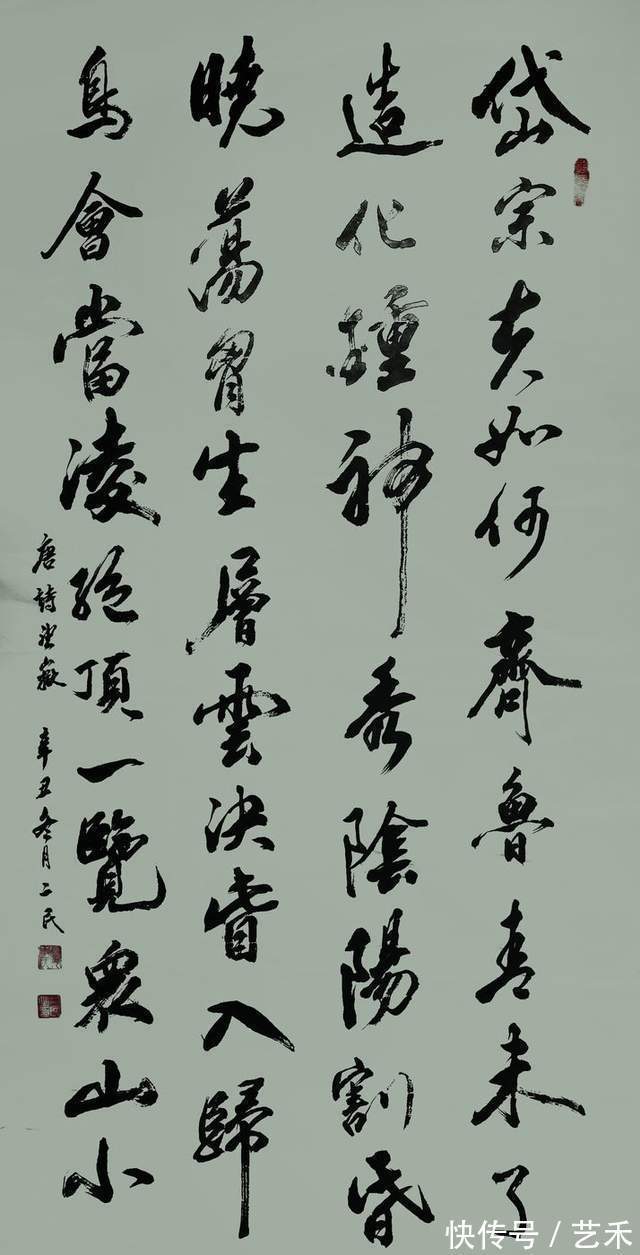 岱宗夫如何齊魯青未了
造化鍾神秀陰陽割昏
曉蕩胷生層雲決眥入歸
鳥會當淩絕頂一覽衆山小
唐詩望嶽 辛丑冬月二民
快传号／艺禾